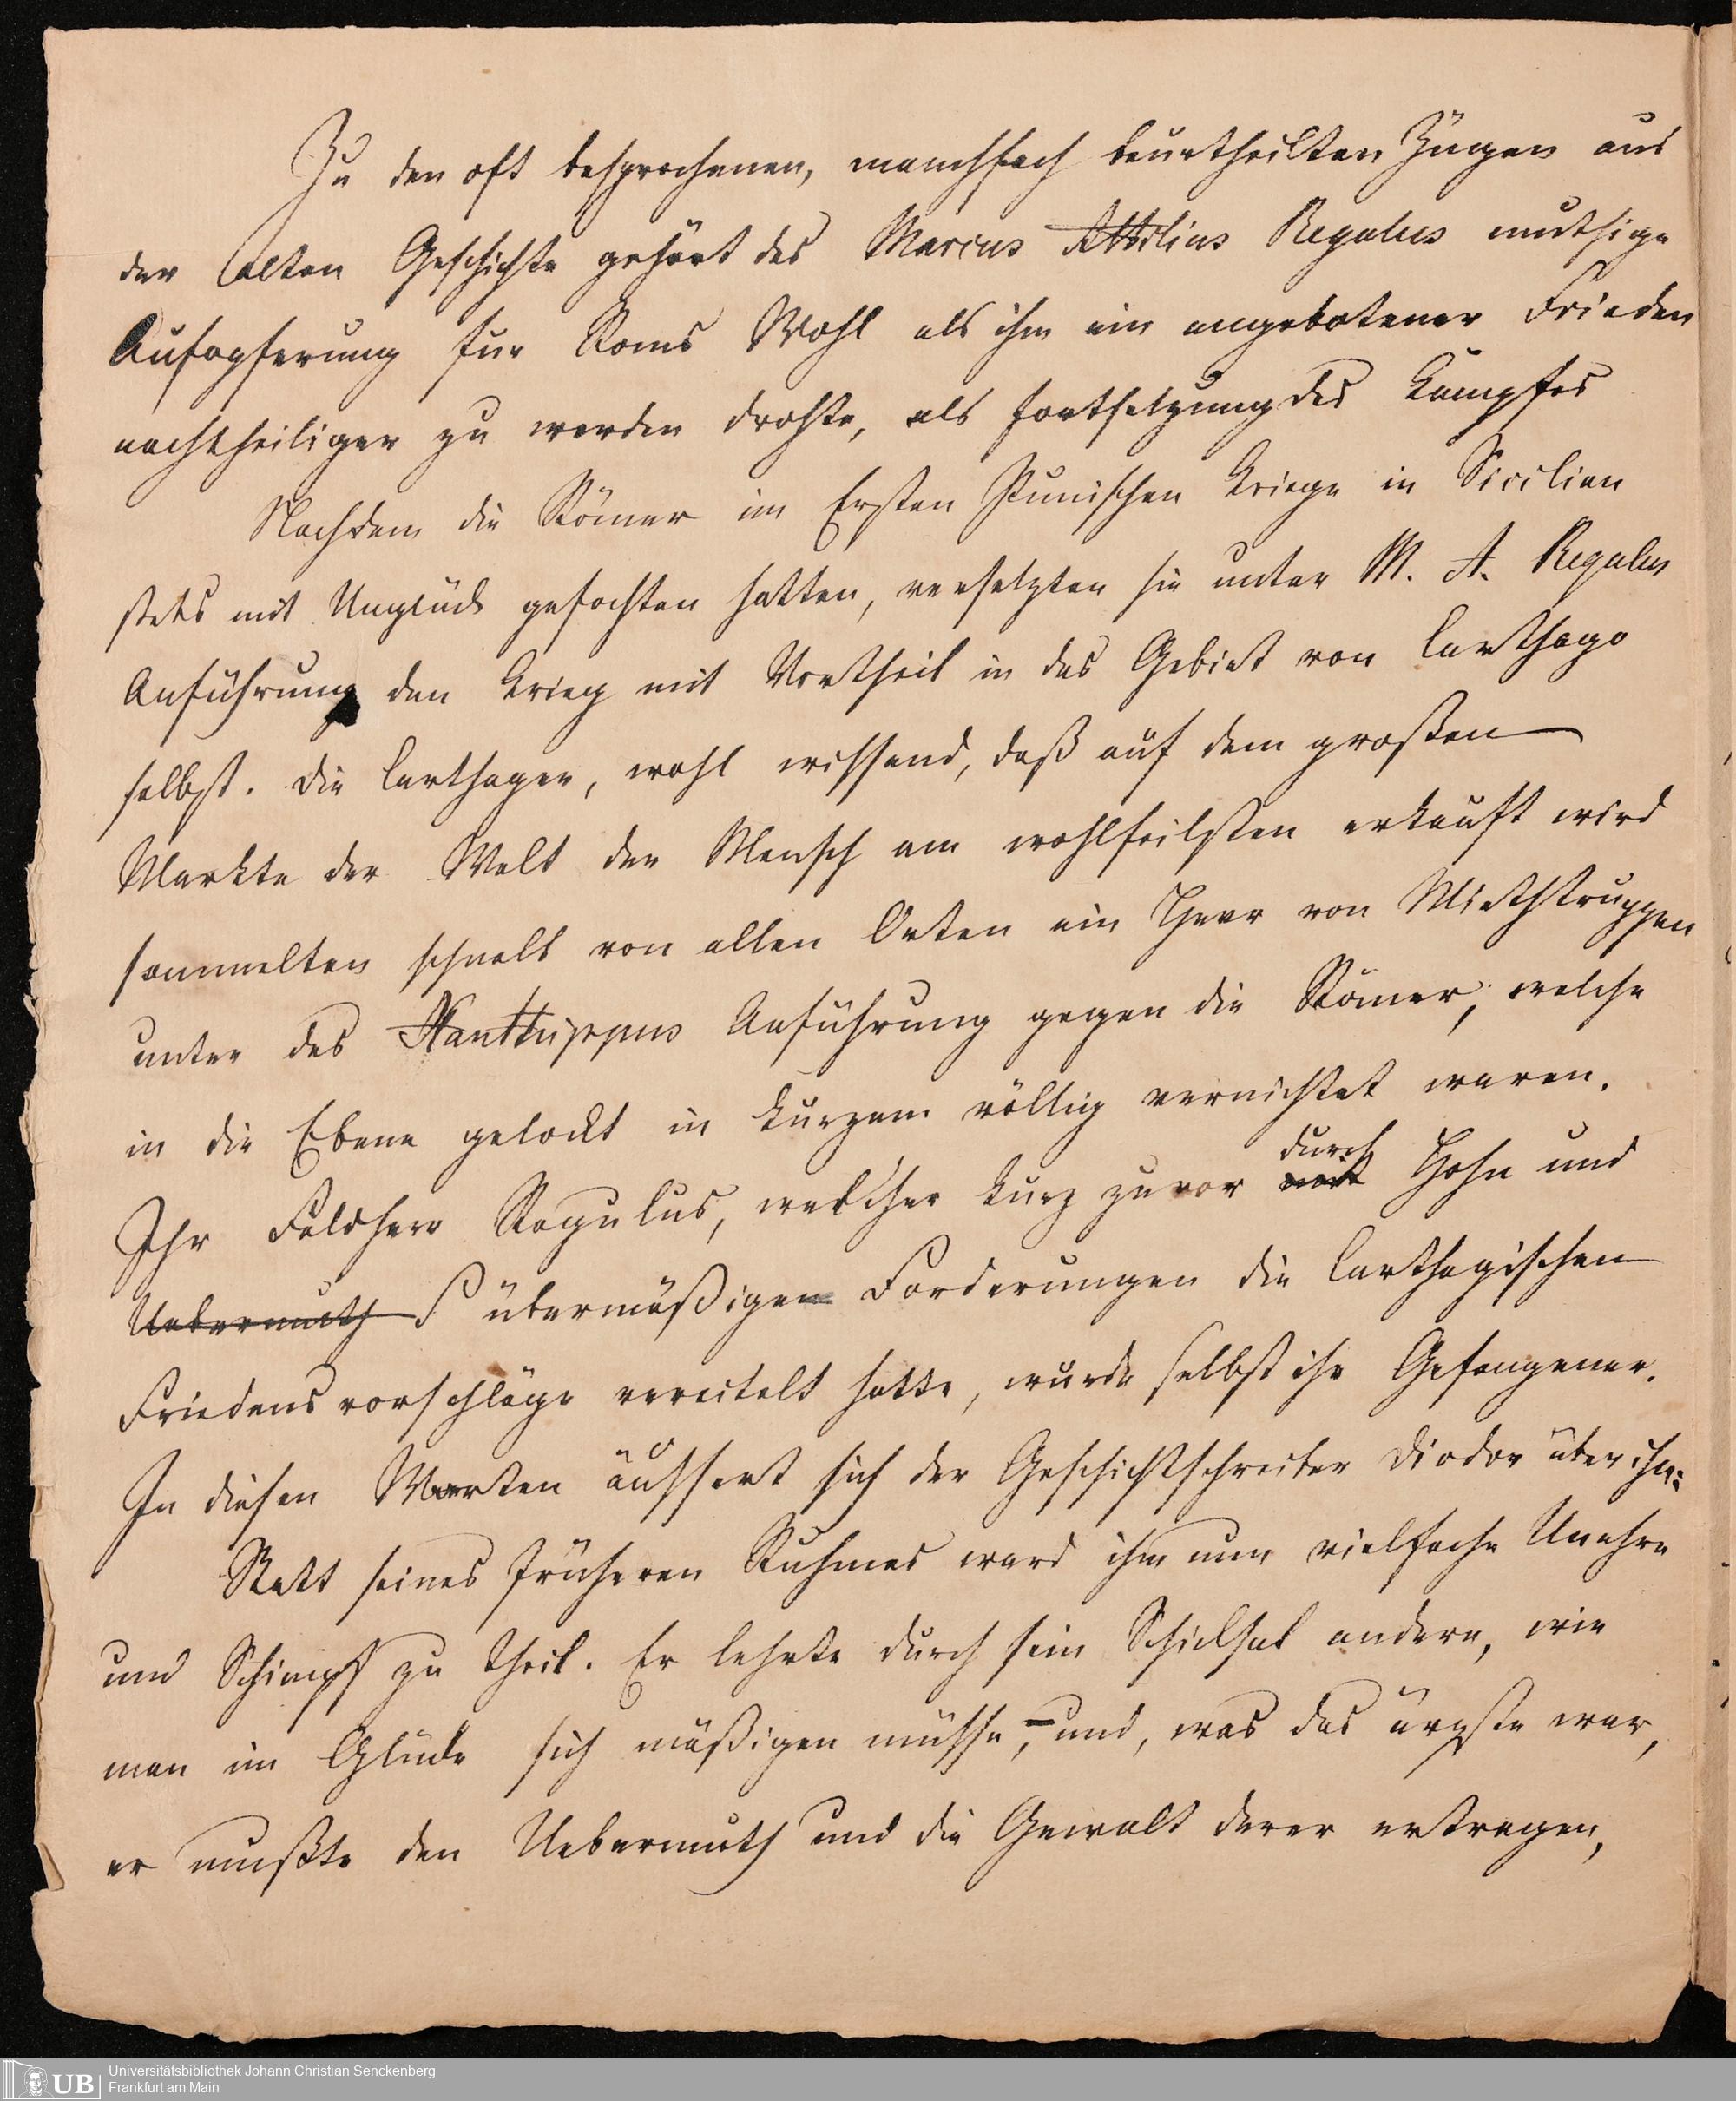 Zu den oft besprochenen, manchfach beurtheilten Zügen aus
der alten Geschichte gehört des Marcus Attilius Regulus muthige
Aufopferung für Roms Wohl als ihm ein angebotener Frieden
nachtheiliger zu werden drohte, als Fortsetzung des Kampfes
Nachdem die Römer im Ersten Punischen Kriege in Sicilien
stets mit Unglück gefochten hatten, versetzten sie unter M. A. Regulus
Anführung den Krieg mit Vortheil in das Gebiet von Carthago
selbst. Die Carthager, wohl wissend, daß auf dem großen
Markte der Welt der Mensch am wohlfeilsten erkauft wird
sammelten schnell von allen Orten ein Heer von Miethstruppen
unter des Xanthippus Anführung gegen die Römer, welche
in die Ebene gelockt in kurzem völlig vernichtet waren.
Ihr Feldherr Regulus, welcher kurz zuvor mit durch Hohn und
Uebermuth übermäßigen Forderungen die Carthagischen
Friedensvorschläge vereitelt hatte, wurde selbst ihr Gefangener.
In diesen Worten äussert sich der Geschichtschreiber Diodor über ihn:
Statt seines früheren Ruhmes ward ihm nun vielfache Unehre
und Schimpf zu theil. Er lehrte durch sein Schicksal andere, wie
man im Glücke sich mäßigen müsse, und, was das ärgste war,
er mußte den Uebermuth und die Gewalt derer ertragen,
UB
Universitätsbibliothek Johann Christian Senckenberg
Frankfurt am Main